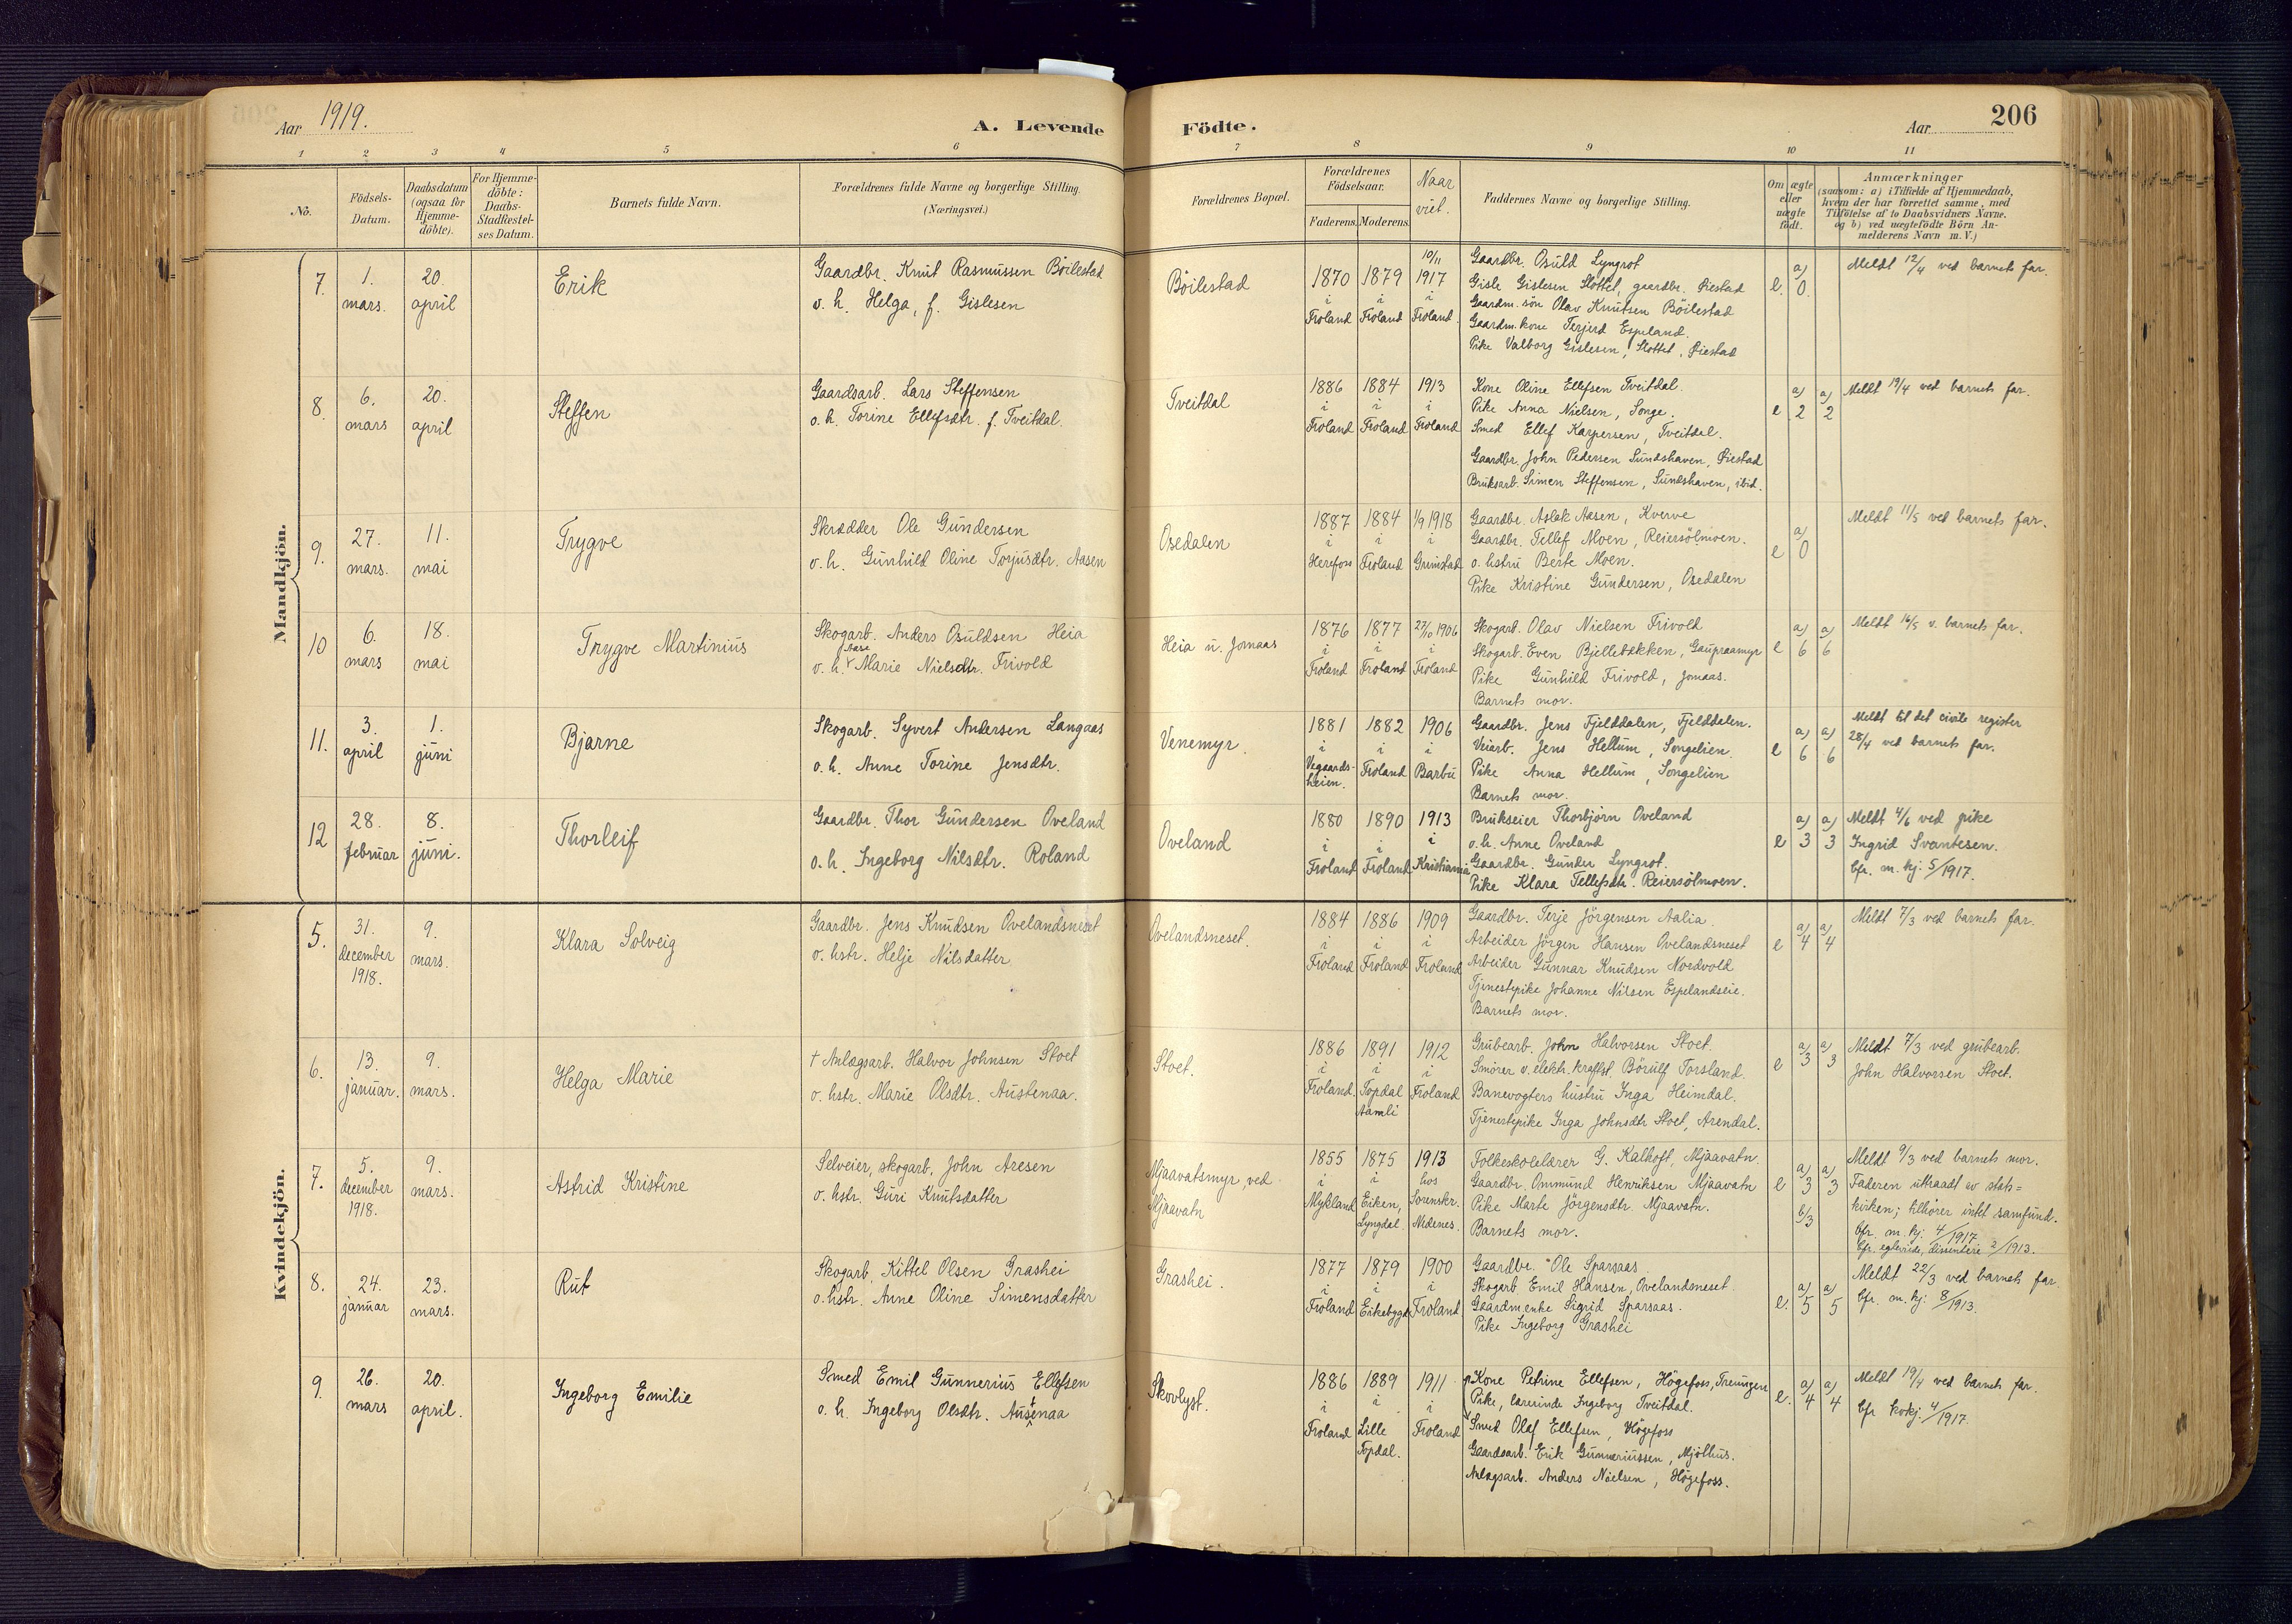 Aar 1919.
A. Levende Födte.
Aar
206
1 2 3 4 5 6 7 8 9 10 11
No.
Födsels-Datum.
Daabsdatum (ogsaa for Hjemme-döbte).
For Hjemme-döbte: Daabs-Stadfæstel-ses Datum.
Barnets fulde Navn.
Forældrenes fulde Navne og borgerlige Stilling. (Næringsvei.)
Forældrenes Bopæl.
Forældrenes Födselsaar.
Faderens. Moderens.
Naar viet.
Faddernes Navne og borgerlige Stilling.
Om ægte eller uægte födt.
Anmærkninger
(saasom: a) i Tilfælde af Hjemmedaab,
hvem der har forrettet samme, med
Tilföielse af to Daabsvidners Navne.
og b) ved uægtefödte Börn An-
melderens Navn m. V.)
Mandkjön.
7. 1. mars. 20. april
Erik
Gaardbr. Knut Rasmussen Böilestad
o. h. Helga, f. Gislesen
Böilestad
1870 i Froland
1879 i Froland
10/11 1917 i Froland.
Gaardbr. Osuld Lyngrot
Gisle Gislesen Slottet, gaardbr. Riestad
Gaardm. sön Olav Knutsen Böilestad
Gaardm. kone Terjerd Espeland.
Pike Valborg Gislesen, Slottet, Riestad
e. a) 0.
Meldt 12/4 ved barnets far.
8. 6. mars 20. april
Steffen
Gaardsarb. Lars Steffensen
o. h. Torine Ellefsdtr. f. Tveitdal.
Tveitdal
1886 i Froland
1884 i Froland
1913 i Froland
Kone Oline Ellefsen Tveitdal.
Pike Anna Nielsen, Songe.
Smed Ellef Kaspersen, Tveitdal.
Gaardbr. John Pedersen Sundshaven, Riestad
Bruksarb. Simen Steffensen, Sundshaven, ibid.
e a) 2 a) 2
Meldt 19/4 ved barnets far.
9. 27. mars. 11. mai
Trygve
Skrædder Ole Gundersen
o. h. Gunhild Oline Torjusdtr. Aasen
Osedalen
1887 i Herefoss
1884 i Froland
1/9 1918 i Grimstad
Gaardbr. Aslak Aasen, Kverve
Gaardbr. Tellef Moen, Reiersölmoen.
o. hstru Berte Moen.
Pike Kristine Gundersen, Osedalen
e a) 0
Meldt 11/5 ved barnets far.
10 6. mars 18. mai
Trygve Martinius
Skogarb. Anders Osuldsen Heia
o. h. Aase Marie Nielsdtr. Frivold
Heia u. Jomaas
1876 i Froland
1877 i Froland
27/10 1906 i Froland
Skogarb. Olav Nielsen Frivold
Skogarb. Even Bjellebækken, Gaupraamyr
Pike Gunhild Frivold, Jomaas.
Barnets mor.
e a) 6 a) 6
Meldt 16/5 v. barnets far.
11. 3. april 1. juni
Bjarne
Skogarb. Syvert Andersen Langaas
o. h. Anne Torine Jensdtr.
Venemyr.
1881 i Vegaards-heien.
1882 i Froland
1906 i Barbu
Gaardbr. Jens Fjelddalen, Fjelddalen.
Veiarb. Jens Hellum, Songelien.
Pike Anna Hellum, Songelien
Barnets mor.
e a) 6 a) 6
Meldt til det civile register
28/4 ved barnets far.
12 28. februar 8. juni.
Thorleif
Gaardbr. Thor Gundersen Oveland
o. h. Ingeborg Nilsdtr. Roland
Oveland
1880 i Froland
1890 i Froland
1913 i Kristiania
Brukseier Thorbjörn Oveland
o. h. Anne Oveland
Gaardbr. Gunder Lyngrot.
Pike Klara Tellefsdtr. Reiersölmoen.
e a) 3 a) 3
Meldt 4/6 ved pike
Ingrid Svantesen.
Cfr. m. kj. 5/1917.
Kvindekjön.
5. 31. december 1918. 9. mars.
Klara Solveig
Gaardbr. Jens Knudsen Ovelandsneset
o. hstr. Helje Nilsdatter
Ovelandsneset.
1884 i Froland
1886 i Froland
1909 i Froland
Gaardbr. Terje Jörgensen Aalia
Arbeider Jörgen Hansen Ovelandsneset
Arbeider Gunnar Knudsen Nordvold
Tjenestepike Johanne Nilsen Espelandseie.
Barnets mor.
e a) 4 a) 4
Meldt 7/3 ved barnets far.
6. 13. januar. 9. mars.
Helga Marie
† Anlægsarb. Halvor Johnsen Stoet
o. hstr. Marie Olsdtr. Austenaa.
Stoet.
1886 i Froland.
1891 i Topdal Aamli
1912 i Froland
Grubearb. John Halvorsen Stoet.
Smörer v. elektr. kraftst. Börulf Torsland.
Banevogters hustru Inga Heimdal.
Tjenestepike Inga Johnsdtr Stoet, Arendal.
e a) 3 a) 3
Meldt 7/3 ved grubearb.
John Halvorsen Stoet.
7. 5. december 1918. 9. mars.
Astrid Kristine
Selveier, skogarb. John Aresen
o. hstr. Guri Knutsdatter
Mjaavatsmyr, ved Mjaavatn
1855 i Mykland
1875 i Eiken, Lyngdal
1913 hos Sorenskr. Nedenes.
Folkeskolelærer G. Kalhoft, Mjaavatn.
Gaardbr. Ommund Henriksen Mjaavatn
Pike Marte Jörgensdtr. Mjaavatn.
Barnets mor.
e a) 3 b/3 a) 3
Meldt 9/3 ved barnets mor.
Faderen uttraadt av stats=
kirken; tilhører intet samfund.
Cfr. m. kj. 4/1917.
Cfr. egteviede, dissentere 2/1913.
8. 24. januar 23. mars.
Rut
Skogarb. Kittel Olsen Grashei
o. hstr. Anne Oline Simensdatter
Grashei.
1877 i Froland
1879 i Eikebygd
1900 i Froland
Gaardbr. Ole Sparsaas
Skogarb Emil Hansen, Ovelandsneset.
Gaardmenke Sigrid Sparsaas.
Pike Ingeborg Grashei
e. a) 5 a) 5
Meldt 22/3 ved barnets far.
Cfr. m. kj. 8/1913.
9. 26. mars 20. april.
Ingeborg Emilie
Smed Emil Gunnerius Ellefsen
o. h. Ingeborg Olsdtr. Austenaa
Skovlyst.
1886 i Froland
1889 i Lille Topdal.
1911 i Froland
Kone Petrine Ellefsen, Högefoss, Treungen
Pike, lærerinde Ingeborg Tveitdal.
Smed Olaf Ellefsen, Högefoss
Gaardsarb. Erik Gunneriussen, Mjölhus.
Anlægsarb. Anders Nielsen, Högefoss.
e. a) 4 a) 4
Meldt 19/4 ved barnets far.
Cfr kvkj. 4/1917.